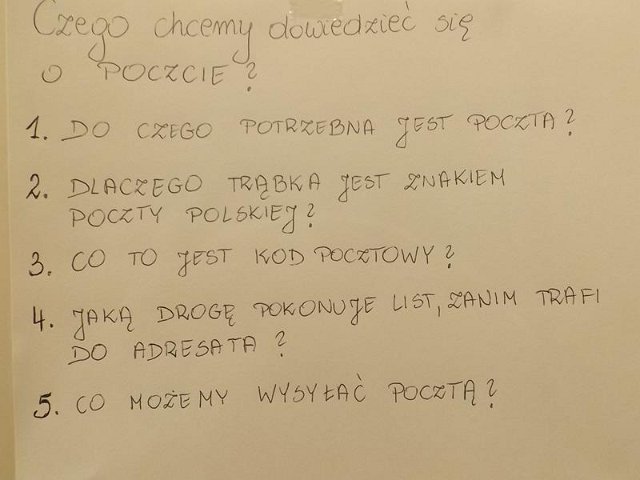 Czego chcemy dowiedzieć się
o POCZCIE?
1. DO CZEGO POTRZEBNA JEST POCZTA?
2. DLACZEGO TRĄBKA JEST ZNAKIEM
POCZTY POLSKIEJ?
3. CO TO JEST KOD POCZTOWY?
4. JAKĄ DROGĘ POKONUJE LIST, ZANIM TRAFI
DO ADRESATA?
5. CO MOŻEMY WYSYŁAĆ POCZTĄ?